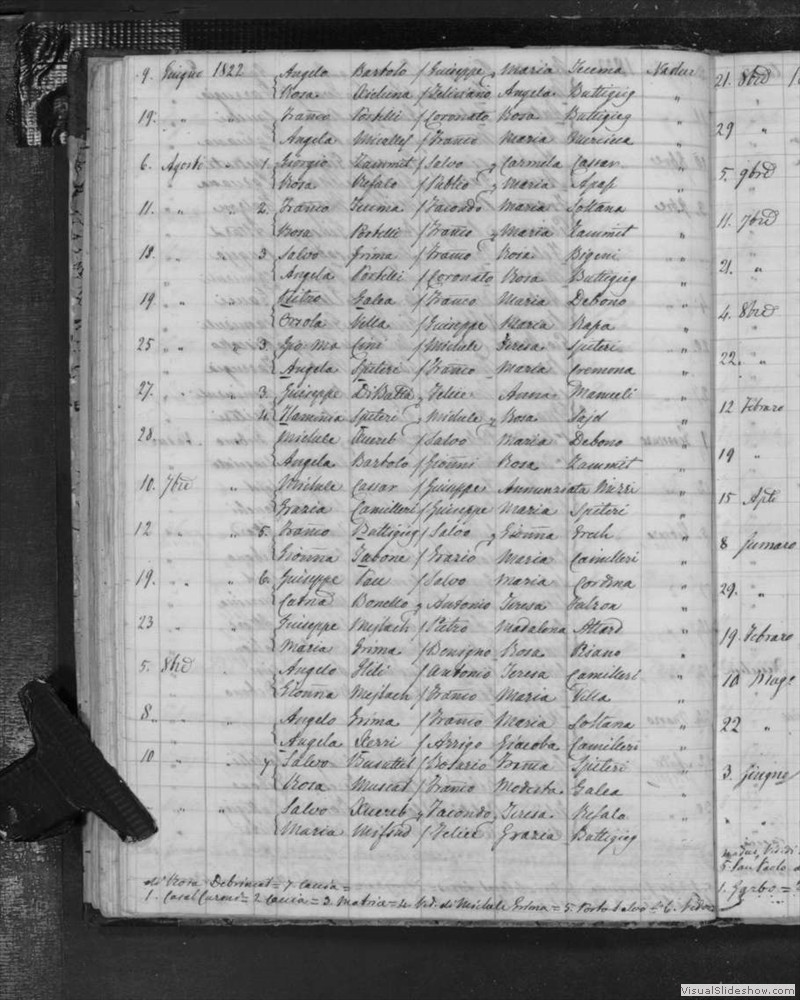 9. Giugno 1822 Angelo Bartolo / Giuseppe Maria Teuma Nadur
Rosa Xiclina / Feliciano Angela Buttigieg "
19. " " Franco Portelli / Coronato Rosa Buttigieg "
Angela Micallef / Franco Maria "
6. Agosto " 1. Giorgio Zammit / Salvo Carmela Cassar "
Rosa Refalo / Publio Maria Apap "
11. " " 2. Franco Teuma / Facondo Maria Soltana "
Rosa Portelli / Franco Maria Zammit "
18. " 3 Salvo Grima / Franco Rosa Bigeni "
Angela Portelli / Coronato Rosa Buttigieg "
19 " Pietro Galea / Franco Maria Debono "
Orsola Vella / Giuseppe Maria Rapa "
25 " " " 3. Gio Ma Cini / Michele Teresa Spiteri "
Angela Spiteri / Franco Maria Cremona "
27. " " 3. Giuseppe DiBatta Felice Anna Mamueli "
4. Flaminia Spiteri Michele Rosa Said "
28. Michele Xuereb / Salvo Maria Debono "
Angela Bartolo / Gionni Rosa Zammit "
10. 7bre " Michele Cassar / Giuseppe Annunziata "
Grazia Camilleri / Giuseppe Maria Spiteri "
12 " 5. Franco Buttigieg / Salvo Gionna Grech "
Gionna Tabone / Grazio Maria Camilleri "
19. " " " 6. Giuseppe Pace / Salvo Maria Cordina "
Catna Bonello Antonio Teresa Falzon "
23 " " Giuseppe Mejlach / Pietro Madalena Attard "
Maria Grima / Benigno Rosa "
5. 8bre " Angelo Hili / Antonio Teresa Camilleri "
Gionna Mejlach / Franco Maria Villa "
8. " " Angelo Grima / Franco Maria Soltana "
Angela Xerri / Arrigo Giacoba Camilleri "
10 " 7 Salvo Busuttil / Rosario Franca Spiteri "
Rosa Muscat / Franco Modesta Galea "
" " Salvo Xuereb Facondo Teresa Refalo "
Maria Mifsud / Felice Grazia Buttigieg "
di Rosa Debrincat = 7. Caccia =
1. Casal Curmi = 2 Caccia = 3 Xeuchia = 4 Ved. di Michele Grima = 5. Porto Salvo = 6. Vedovo
21. 8bre 1
29 "
5. 9bre
11. 7bre
21. "
4. 8bre
22. "
12 Febraro
19 "
15 Aple
8 Jennaro
29. "
19. Febraro
10 Mago
22 "
3. Giugno
"
5 San Paolo
1. Garbo =
VisualSlideshow.com